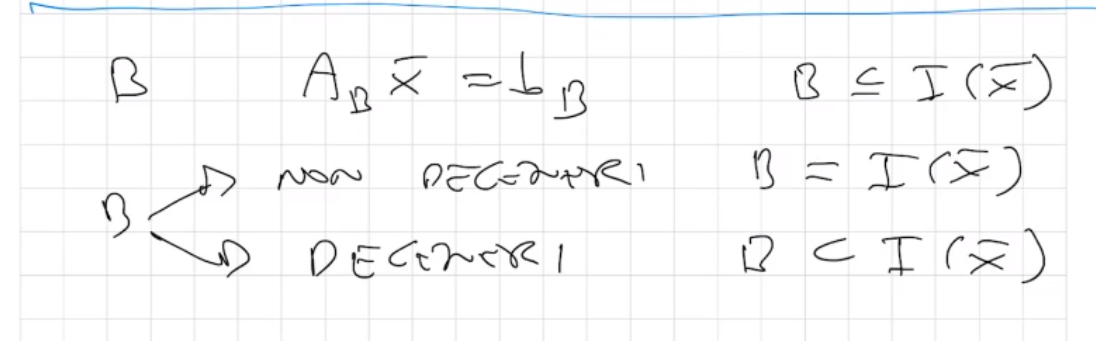 B A_B x̄ = b_B B ⊆ I(x̄)
NON DEGENERI B = I(x̄)
B
DEGENERI B ⊂ I(x̄)